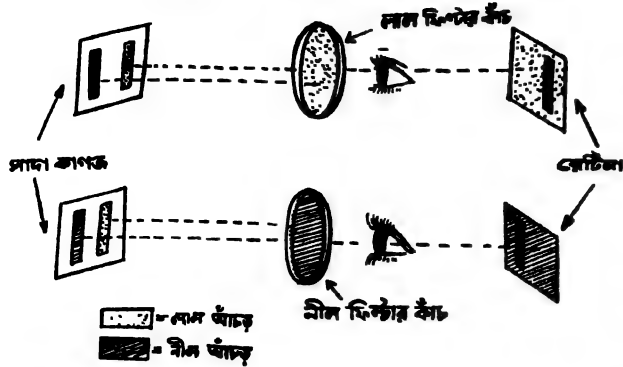 লাল ফিল্টার কাঁচ
সাদা কাগজ
রেটিনা
নীল ফিল্টার কাঁচ
= লাল আঁচড়
= নীল আঁচড়